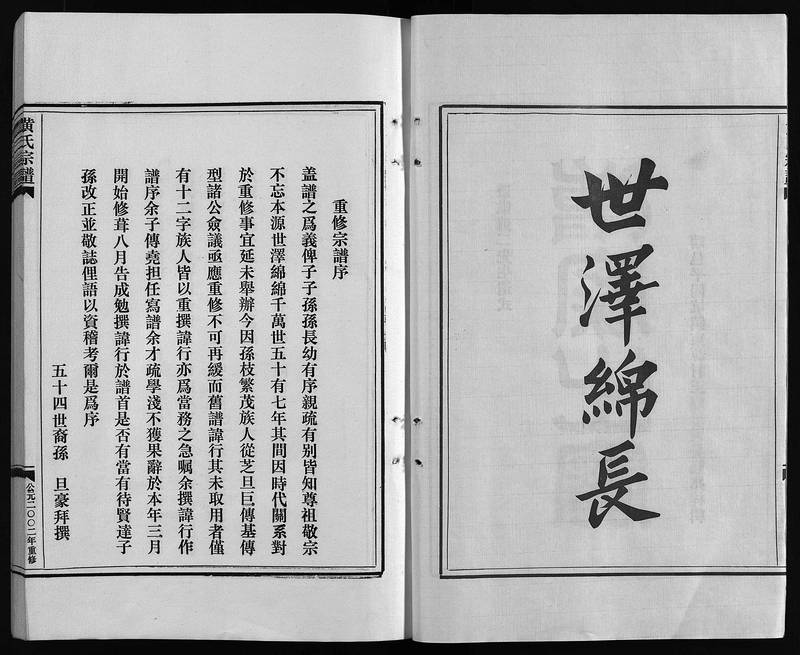 世澤綿長
重修宗譜序
蓋譜之爲義俾子子孫孫長幼有序親疏有别皆知尊祖敬宗
不忘本源世澤綿綿千萬世五十有七年其間因時代關系對
於重修事宜延未舉辦今因孫枝繁茂族人從芝旦巨傳基傳
型諸公僉議亟應重修不可再緩而舊譜諱行其未取用者僅
有十二字族人皆以重撰諱行亦爲當務之急嘱余撰諱行作
譜序余子傳堯担任寫譜余才疏學淺不獲果辭於本年三月
開始修葺八月告成勉撰諱行於譜首是否有當有待賢達子
孫改正並敬誌俚語以資稽考爾是爲序
五十四世裔孫 旦豪拜撰
黄氏宗譜
公元二〇〇二年重修